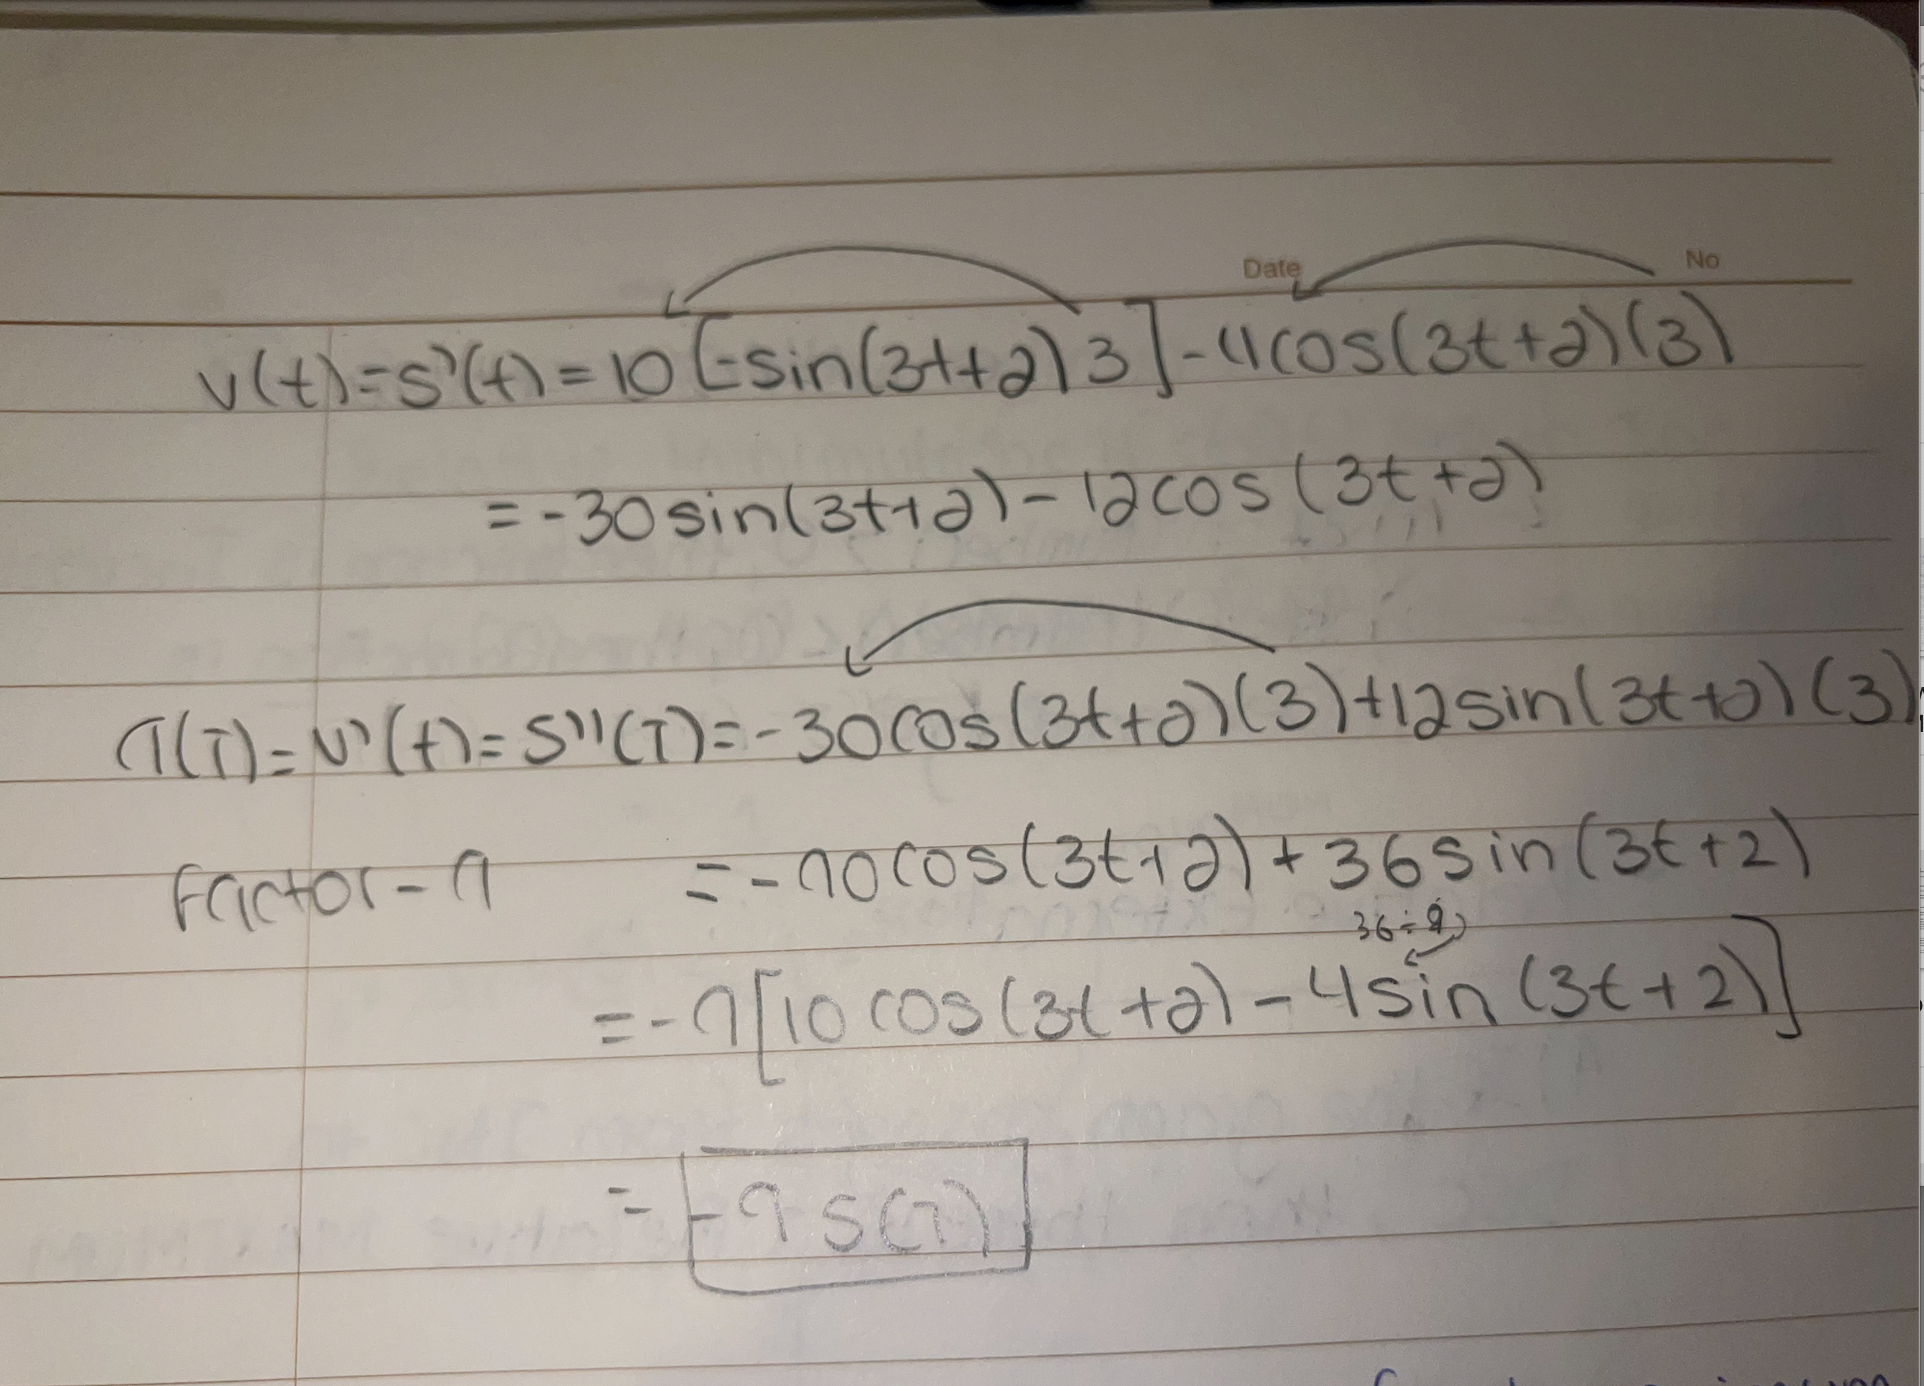 Date No
v(t)=s'(t)=10[-sin(3t+2)3]-4cos(3t+2)(3)
=-30sin(3t+2)-12cos(3t+2)
a(T)=v'(t)=s''(T)=-30cos(3t+2)(3)+12sin(3t+2)(3)
Factor-9 =-90cos(3t+2)+36sin(3t+2)
36÷9
=-9[10cos(3t+2)-4sin(3t+2)]
=-9s(T)